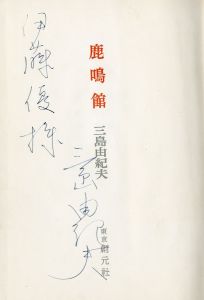 伊藤優様
鹿鳴館
三島由紀夫
三島由紀夫
東京 創元社